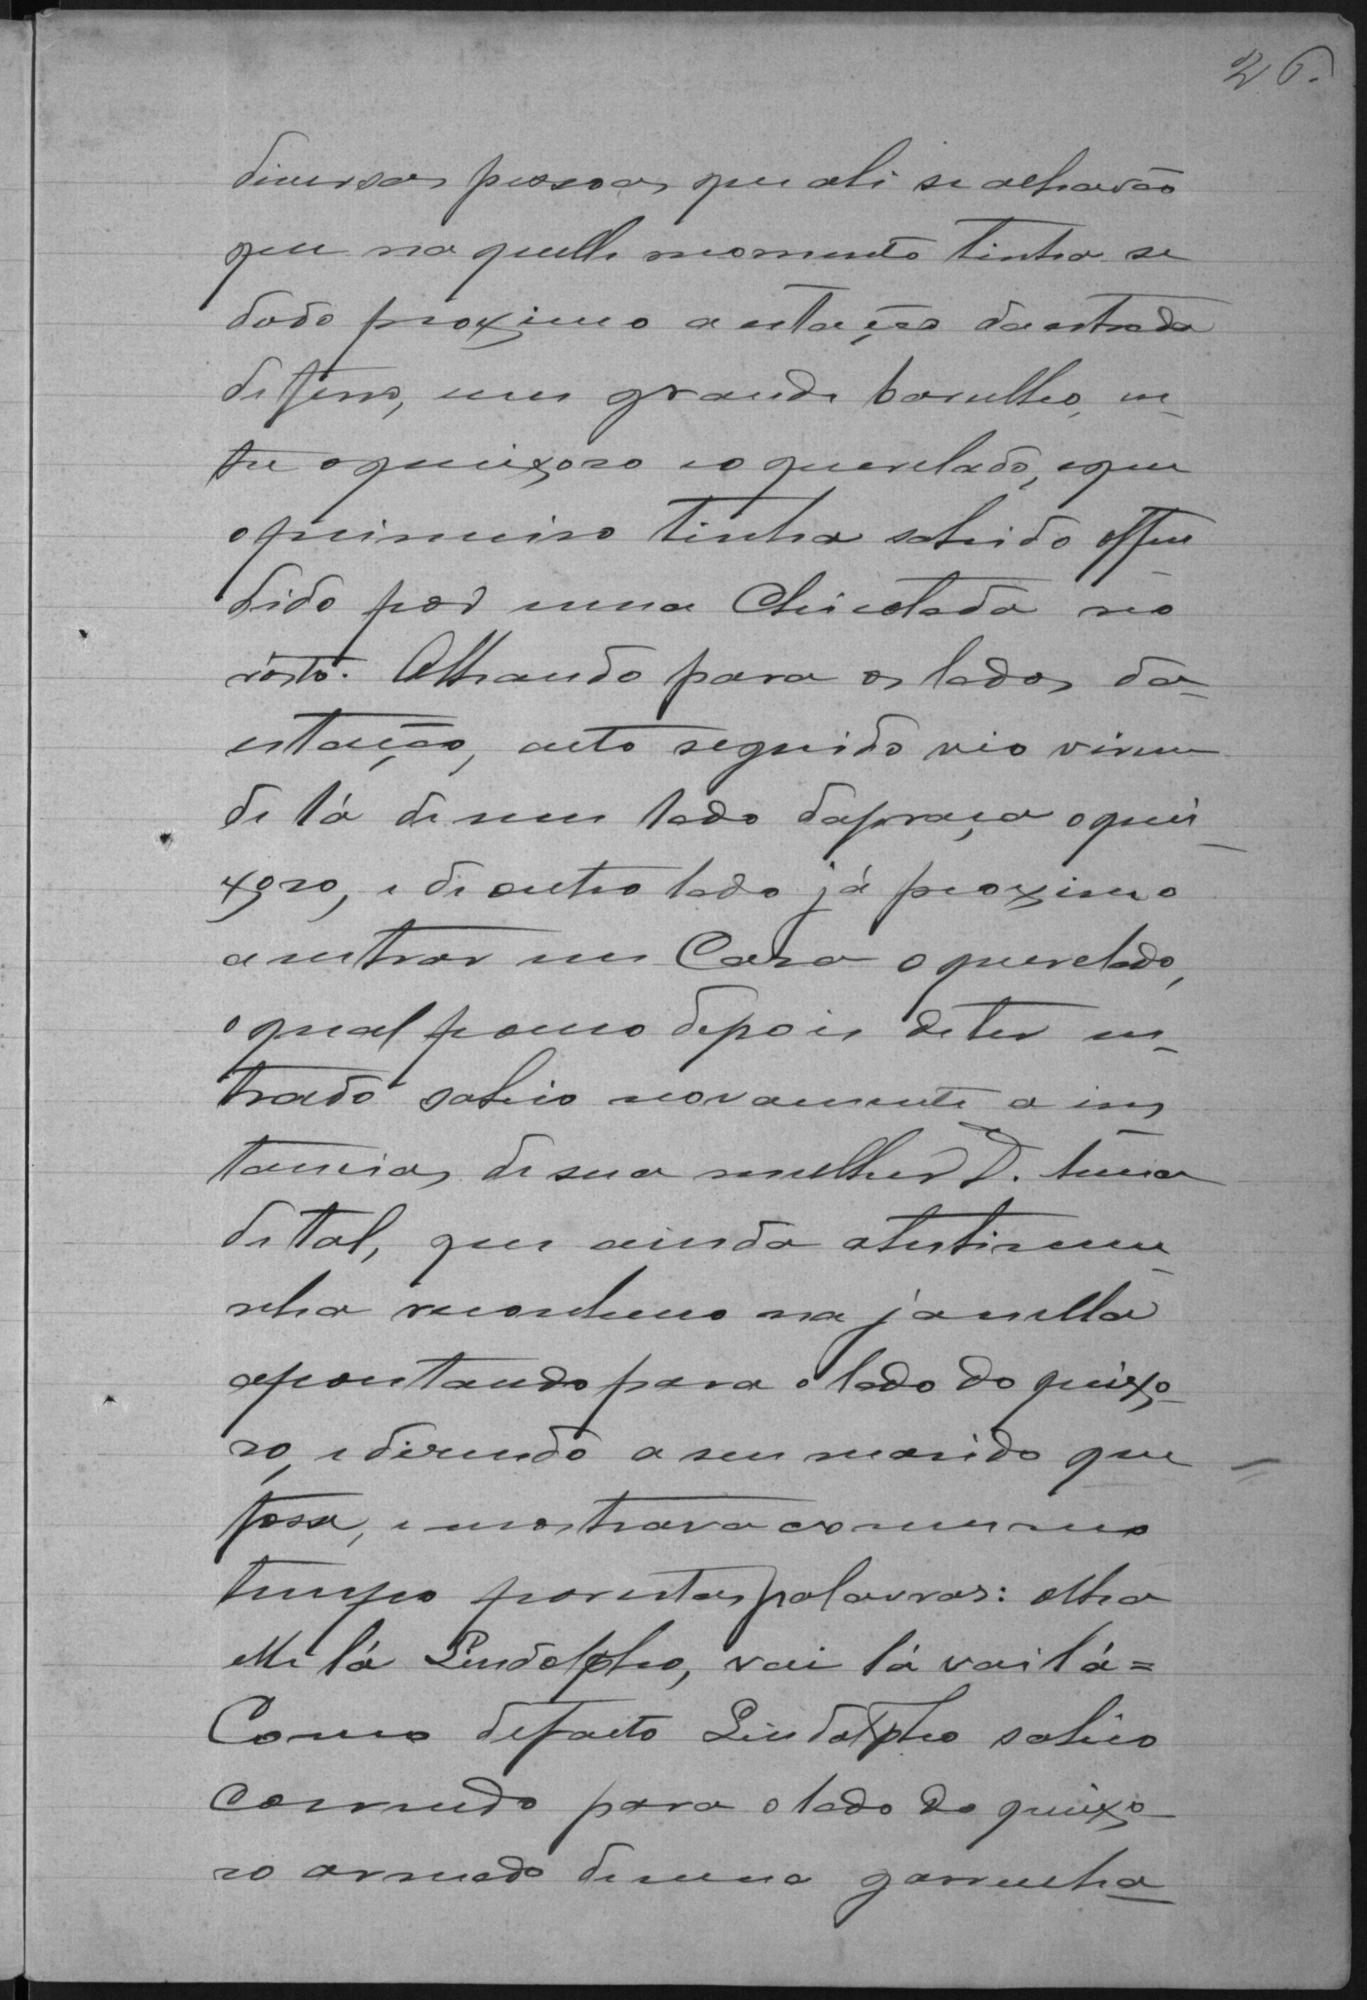 26.
diversas pessoas que ali se achavão
que na quelle momento tinha se
dado proximo a estação da estrada
de ferro, um grande barulho, en-
tre o queixoso e o querelado, e que
o primeiro tinha sahido offen-
dido por uma Chicotada no
rosto. Olhando para os lados da-
estação, acto seguido vio virem
de lá de um lado da praça o quei-
xoso, e de outro lado já proximo
a entrar em Casa o querelado,
o qual pouco depois de ter en-
trado sahio novamente a ins
tancias de sua mulher D.
de tal, que ainda a testemu-
nha reconheceo na janella
apontando para o lado do queixo-
so, e dizendo a seu marido que
fosse, e mostrava ao mesmo
tempo por estas palavras: olha
elle lá Lindolpho, vai lá vai lá =
Como de facto Lindolpho sahio
correndo para o lado do queixo-
so armado de uma garrucha